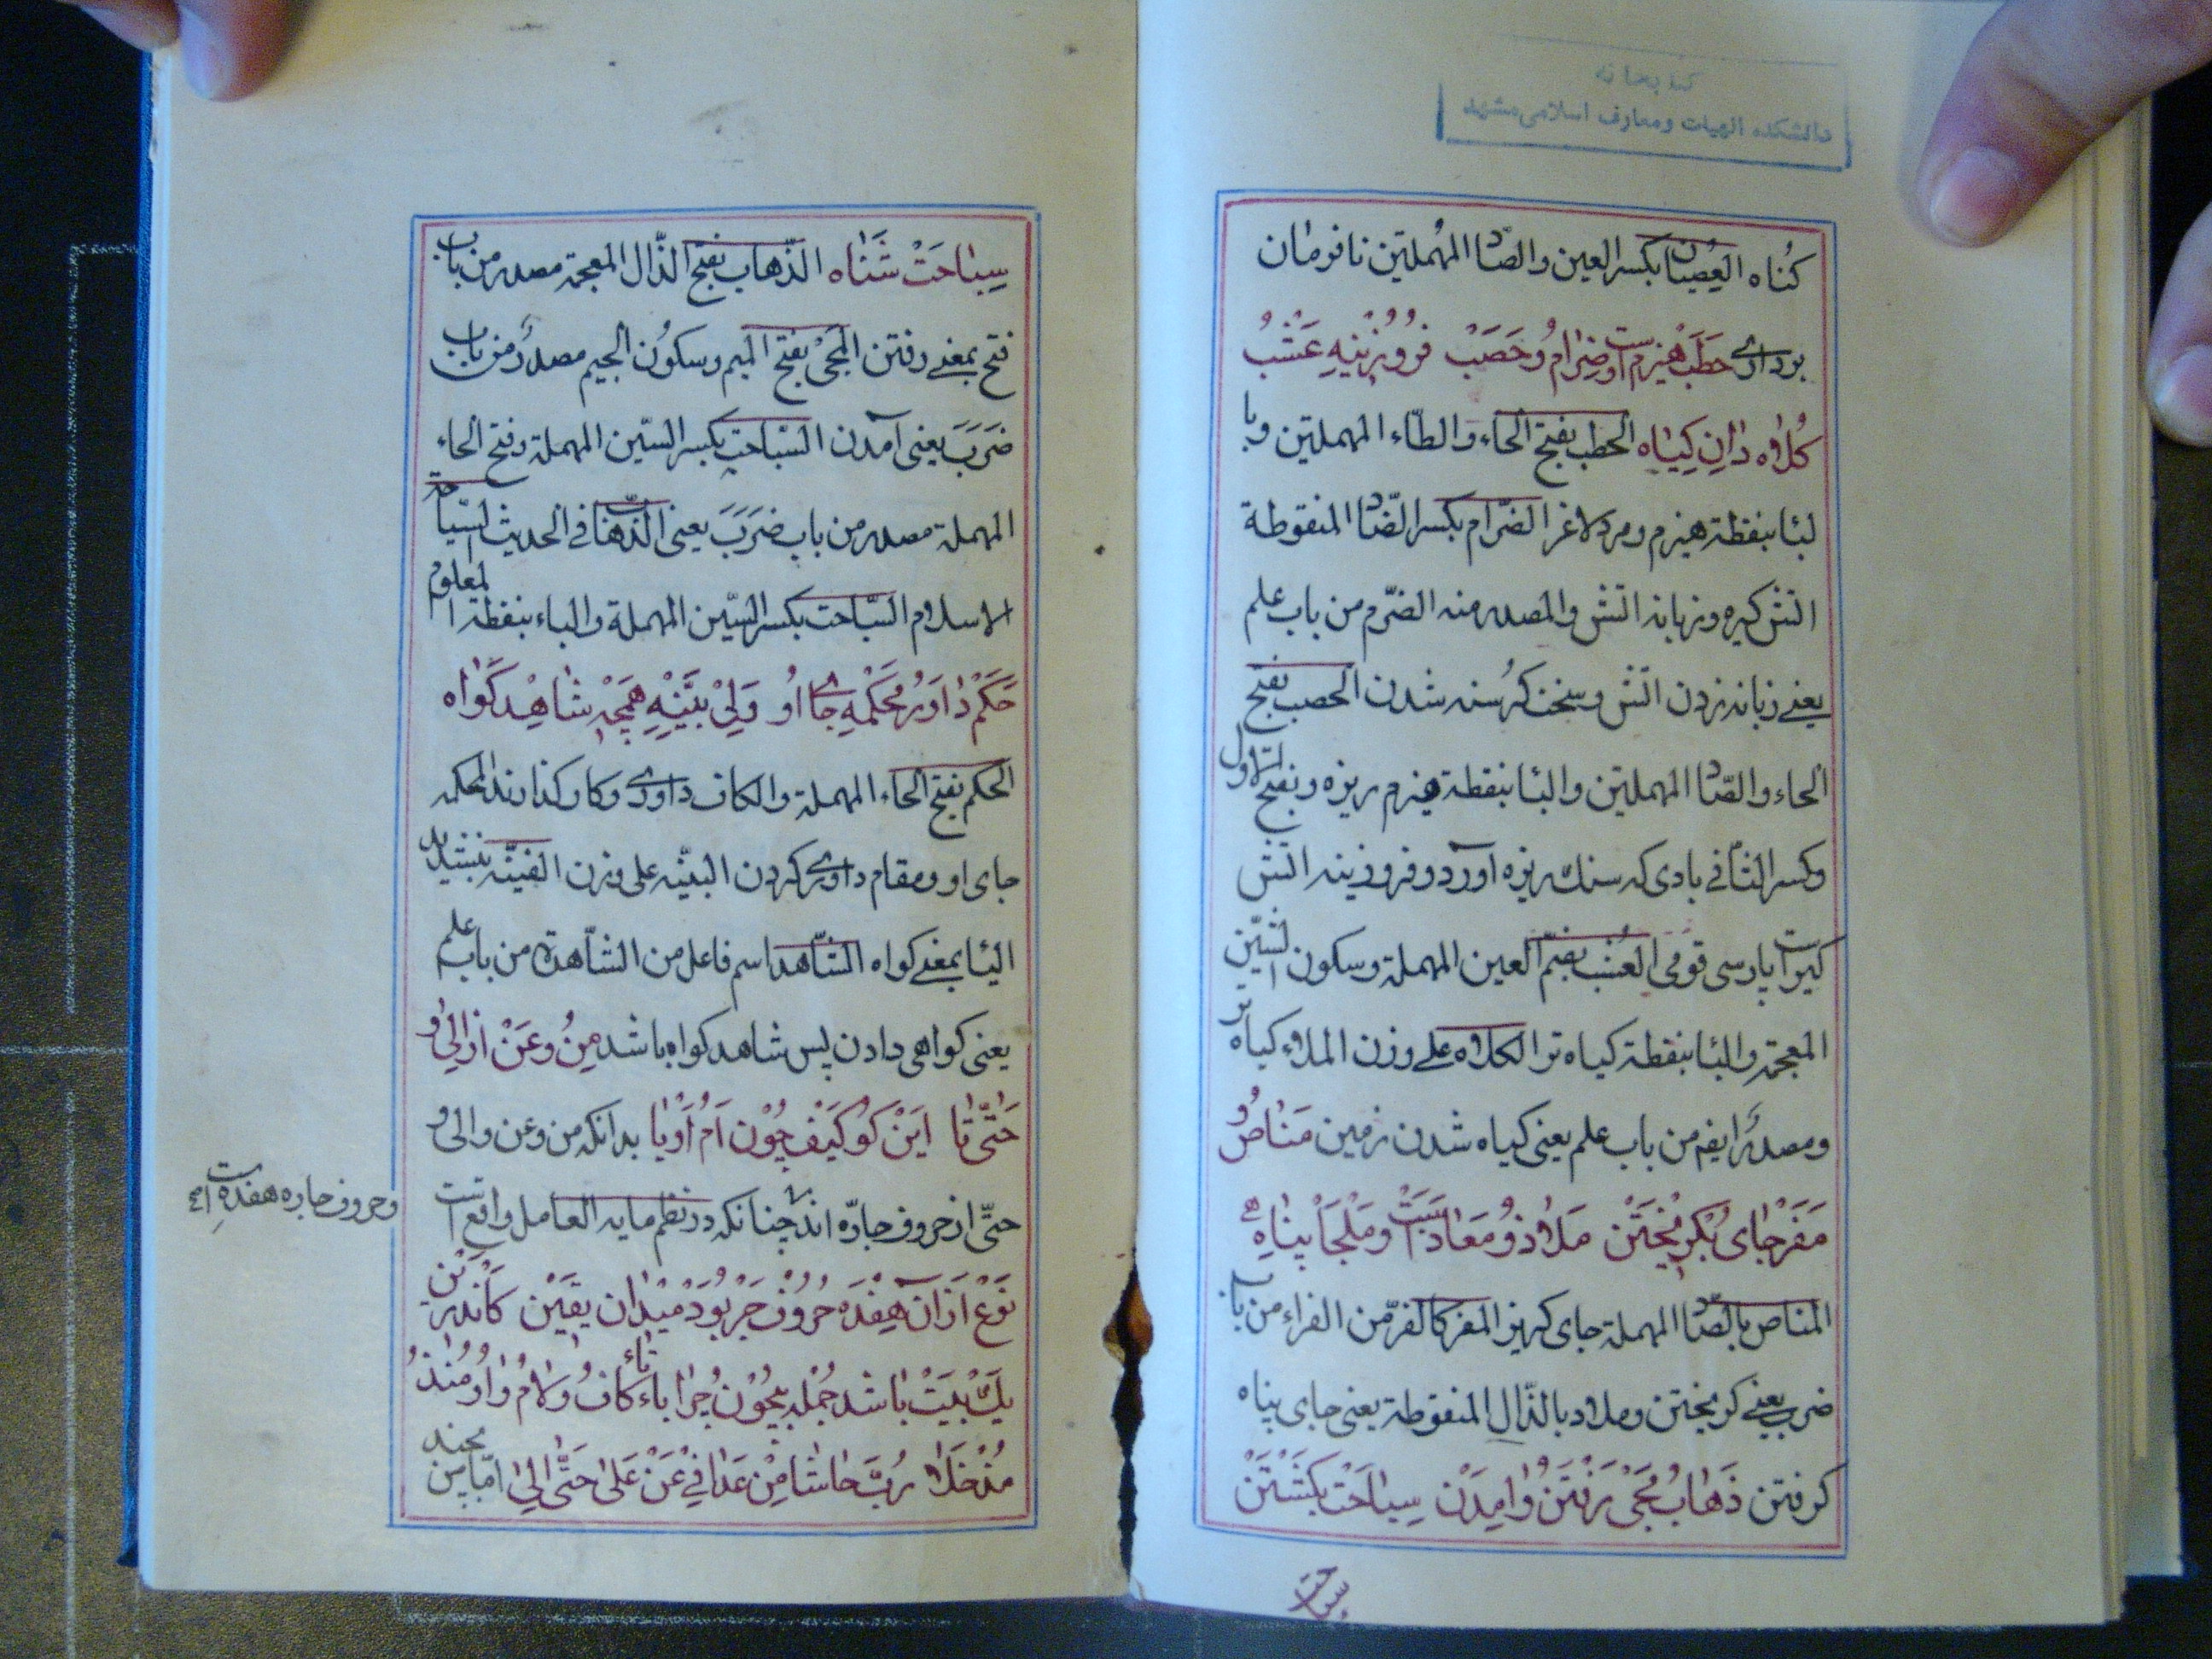 کتابخانه
دانشکده الهیات و معارف اسلامی مشهد
کناه العصیان بکسر العین والصّاد المهملتین نافرمان
برداری حطب هیزم است و ضرام و حصب فروزینه عشب
کلاه دان کیاه الحطب بفتح الحاء والطّاء المهملتین وبا
لبا بنقطة هیزم ومرد لاغر الضّرام بکسر الضّاد المنقوطة
اتش کیره وزبانه اتش والمصدر منه الضّرم من باب علم
یعنی زبانه زدن اتش وسخت کرسنه شدن الحصب بفتح
الحاء والصّاد المهملتین والبا بنقطة هیزم ریزه وبفتح الاول
وکسر الثانی بادی که سنك ریزه آورد وفروزینه اتش
کیرا پارسی قومی العشب بضمّ العین المهملة وسکون الشین
المعجمة والبا بنقطة کیاه تر الکلاه علی وزن الملاء کیاه تر
ومصدر ایضم من باب علم یعنی کیاه شدن زمین مناص و
مفر جای بکریختن ملاذ و معاذست وملجا پناهی
المناص بالصّاد المهملة جای کریز المفر کالفرّ من الفراء من باب
ضرب یعنی کریختن وملاد بالذّال المنقوطة یعنی جای پناه
کرفتن ذهاب مجی رفتن و امدن سیاحت بکشتن
سباحت
سباحت شناه الذّهاب بفتح الذّال المعجمة مصدر من باب
فتح بمعنی رفتن المجیْ بفتح المیم وسکون الجیم مصدر من باب
ضَرَبَ یعنی آمدن السّیاحت بکسر السّین المهملة وفتح الحاء
المهملة مصدر من باب ضَرَبَ یعنی الذّهاب فی الحدیث لا سیاحة
الاسلام السّباحت بکسر السّین المهملة والباء بنقطة المعلوم
حَکَم داور محکمه جای او ولی بیّنه همچه شاهد کواه
الحکم بفتح الحاء المهملة والکاف داوری وکار کذارنده المحکمه
جای او ومقام داوری کردن البیّنه علی وزن الفیئه بتشدید
الیا بمعنی کواه الشّاهد اسم فاعل من الشّاهدة من باب علم
یعنی کواهی دادن پس شاهد کواه باشد مِن و عَن از الی و
حَتّی تا این کو کیف چون ام او یا بدانکه من وعن والی و
حتّی از حروف جارّه اند چنانکه در نظم مایه العامل واقع است
وحروف جاره هفده است
نوع از ان هفده حروف جر بود میدان یقین کاندرین
یك بیت باشد جمله بیچون و چرا باء تاء کاف و لام و واو و منذ
مذ خلا ربّ حاشا من عدا فی عن علی حتّی الی امّا من
بحند